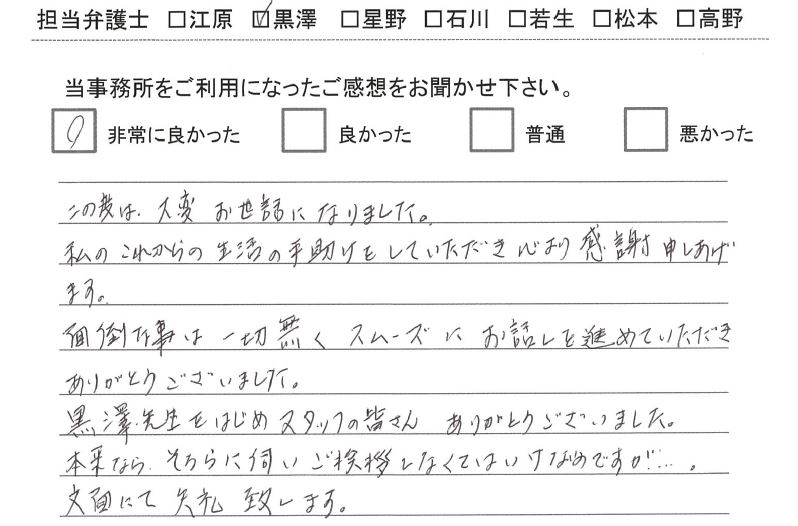 担当弁護士 □江原 ☑黒澤 □星野 □石川 □若生 □松本 □高野
当事務所をご利用になったご感想をお聞かせ下さい。
○ 非常に良かった □ 良かった □ 普通 □ 悪かった
この度は、大変 お世話に なりました。
私の これからの 生活の手助けを していただき 心より 感謝 申しあげ
ます。
面倒な事は 一切 無く スムーズに お話しを進めていただき
ありがとうございました。
黒澤先生をはじめ スタッフの皆さん ありがとうございました。
本来なら、そちらに伺い ご挨拶しなくてはいけなのですが…。
文面にて 失礼 致します。